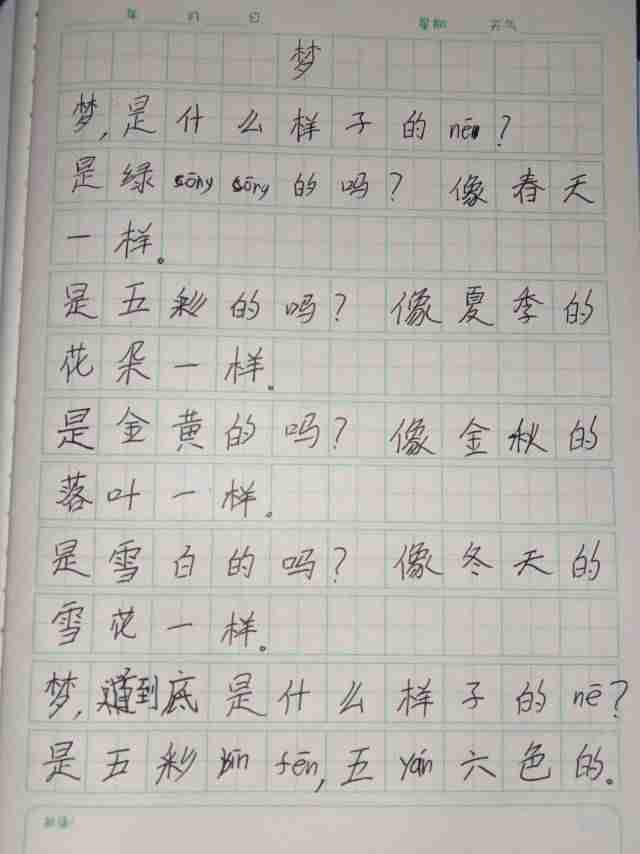 年 月 日 星期 天气
梦
梦,是什么样子的nē?
是绿cōng cōng的吗? 像春天
一样。
是五彩的吗? 像夏季的
花朵一样。
是金黄的吗? 像金秋的
落叶一样。
是雪白的吗? 像冬天的
雪花一样。
梦,到底是什么样子的nē?
是五彩bīn fēn,五yán六色的。